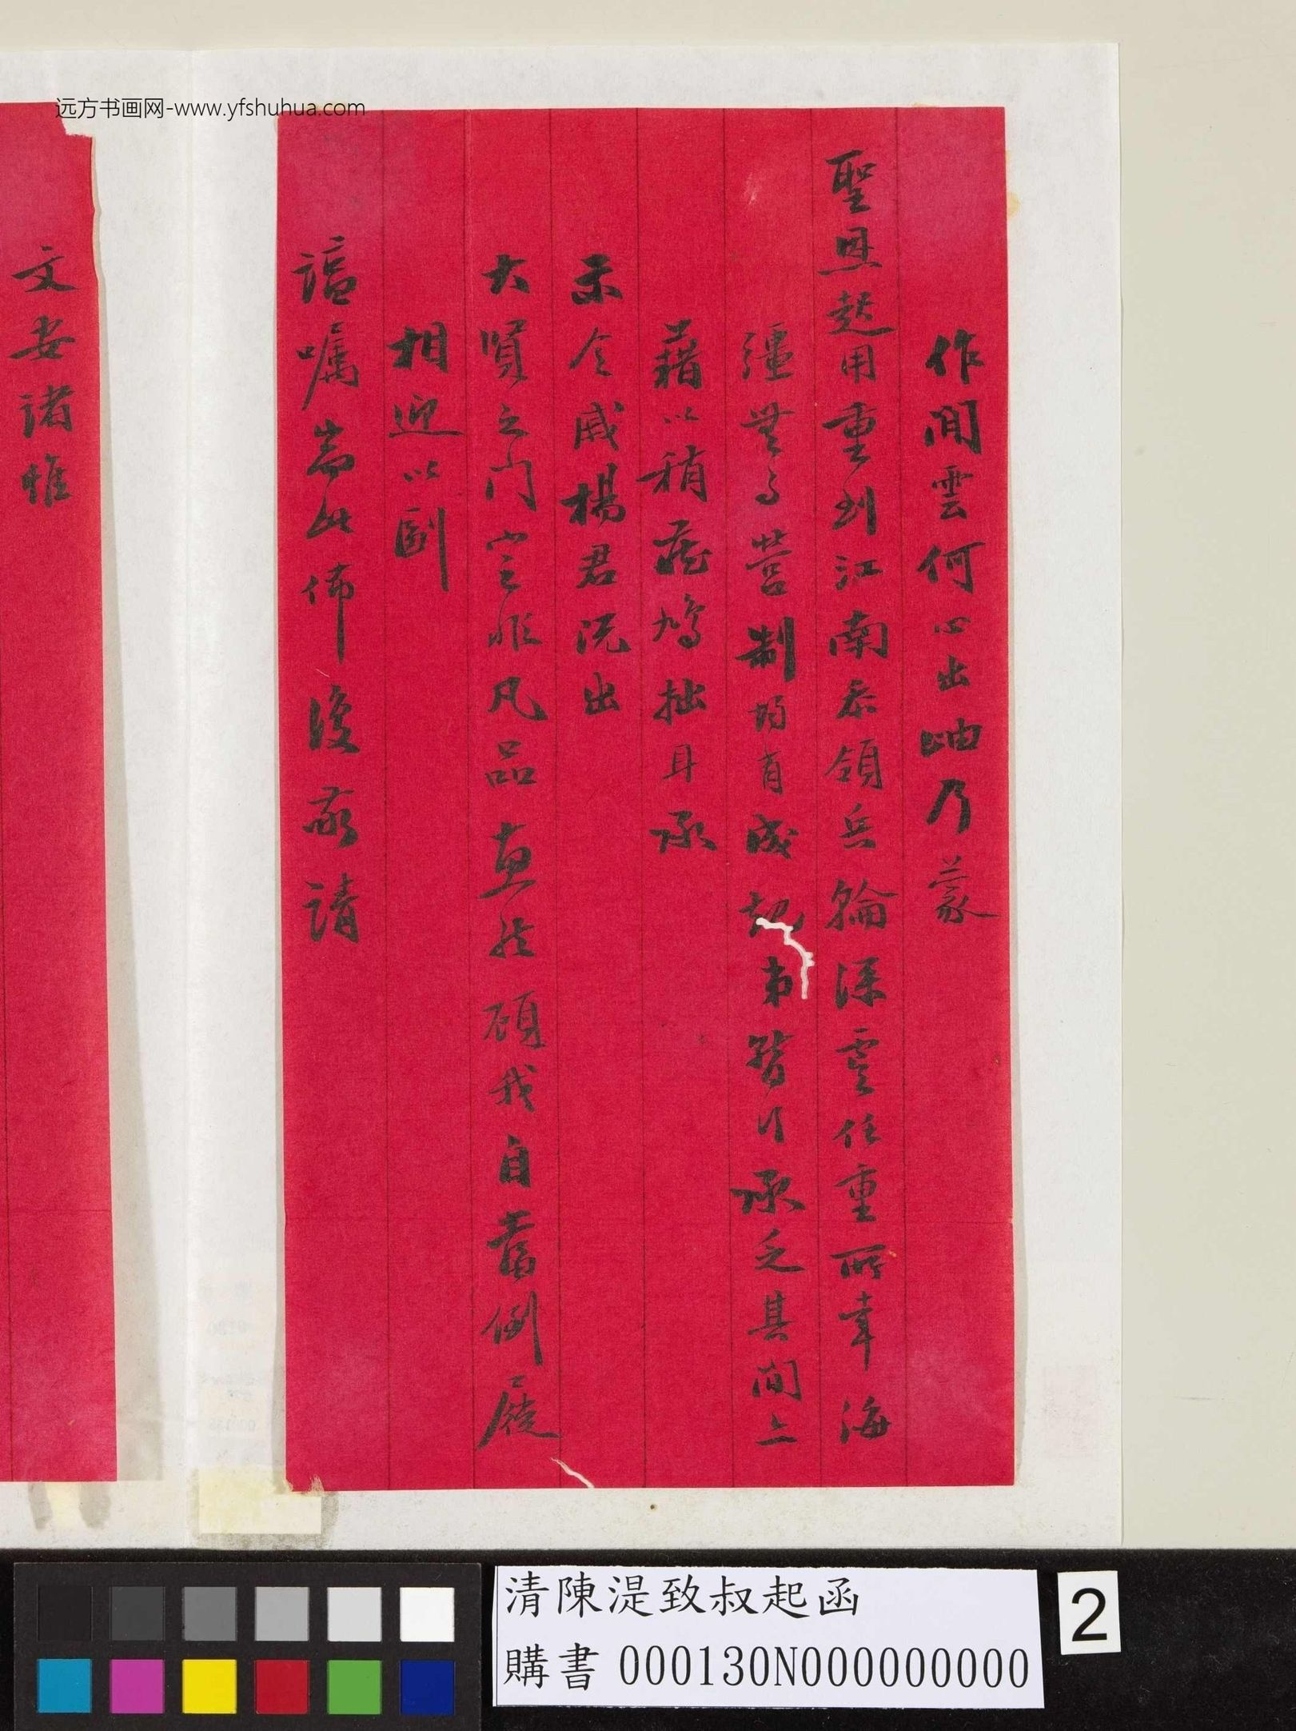 远方书画网-www.yfshuhua.com
作閒雲何心出岫乃蒙
聖恩起用重到江南忝領兵輪深虞任重所幸海
疆無事營制均有成規弟暫行承乏其間亦
藉以稍藏鳩拙耳承
示令戚楊君況出
大賢之門定非凡品惠然顧我自當倒屣
相迎以副
諈囑耑此佈復敬請
文安諸惟
清陳湜致叔起函
購書 000130N000000000
2